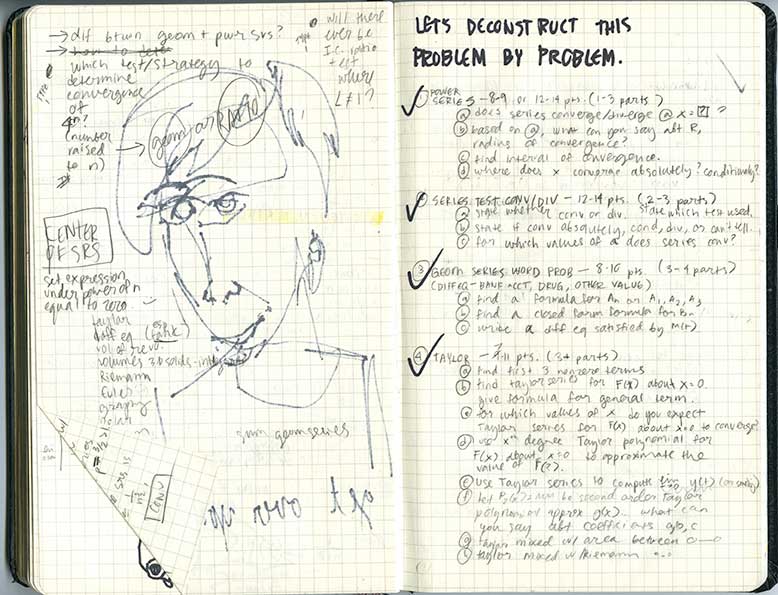 → dif btwn geom + pwr srs?
→ how to
which test/strategy to
determine
convergence
of
(number
raised
to n)
→ geom or RATIO
will there
ever be
ratio
test
where
L≠1?
CENTER
OF SRS
set expression
under power of n
equal to zero
taylor
diff eq (esp. tank)
vol of revo.
volumes 3D solids - integrate
Riemann
Euler
graphing
polar
geom series
CONV
LETS DECONSTRUCT THIS
PROBLEM BY PROBLEM.
① POWER
SERIES - 8-9 or 12-14 pts. (1-3 parts)
ⓐ does series converge/diverge @ x = ?
ⓑ based on ⓐ, what can you say abt R,
radius of convergence?
ⓒ find interval of convergence.
ⓓ where does x converge absolutely? conditionally?
② SERIES TEST CONV/DIV - 12-14 pts. (2-3 parts)
ⓐ state whether conv or div. state which test used.
ⓑ state if conv absolutely, cond, div, or can't tell.
ⓒ for which values of a does series conv?
③ GEOM SERIES WORD PROB - 8-10 pts. (3-4 parts)
(DIFFEQ - BANK ACCT, DRUG, OTHER VALUE)
ⓐ find a formula for An or A1, A2, A3
ⓑ find a closed form formula for Bn
ⓒ write a diff eq satisfied by M(t)
④ TAYLOR - 7-11 pts. (3+ parts)
ⓐ find first 3 nonzero terms
ⓑ find taylor series for F(x) about x=0.
give formula for general term.
ⓒ for which values of x do you expect
Taylor series for F(x) about x=0 to converge?
ⓓ use xth degree Taylor polynomial for
F(x) about x=0 to approximate the
value of F(2).
ⓔ use Taylor series to compute lim y(t)
ⓕ let P2(x) = be second order Taylor
polynom of approx g(x). what can
you say abt coefficients a, b, c
ⓖ taylor mixed w/ area between
ⓗ taylor mixed w/ Riemann